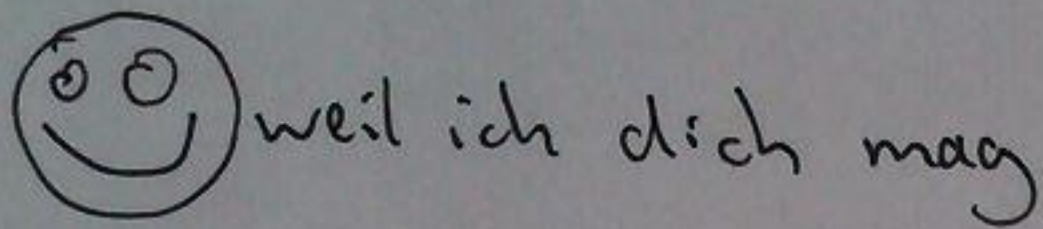 weil ich dich mag